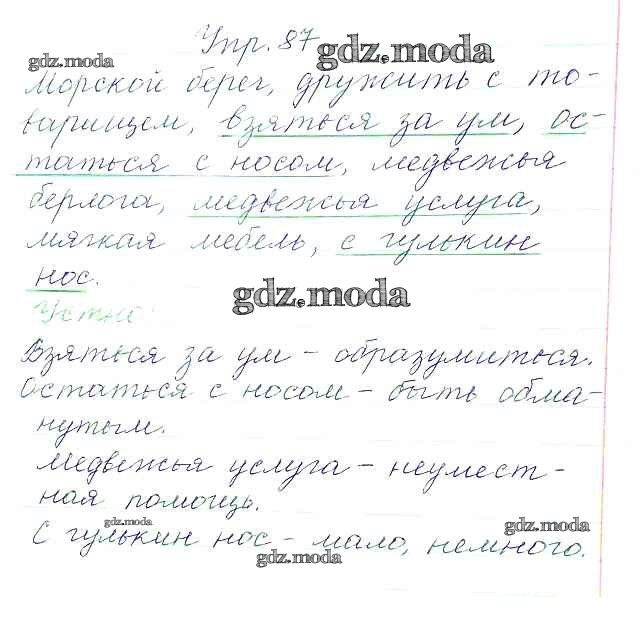 Упр. 87
gdz.moda
gdz.moda
Морской берег, дружить с то-
варищем, взяться за ум, ос-
таться с носом, медвежья
берлога, медвежья услуга,
мягкая мебель, с гулькин
нос.
gdz.moda
Устно:
Взяться за ум – образумиться.
Остаться с носом – быть обма-
нутым.
Медвежья услуга – неумест-
ная помощь.
gdz.moda
С гулькин нос – мало, немного.
gdz.moda
gdz.moda